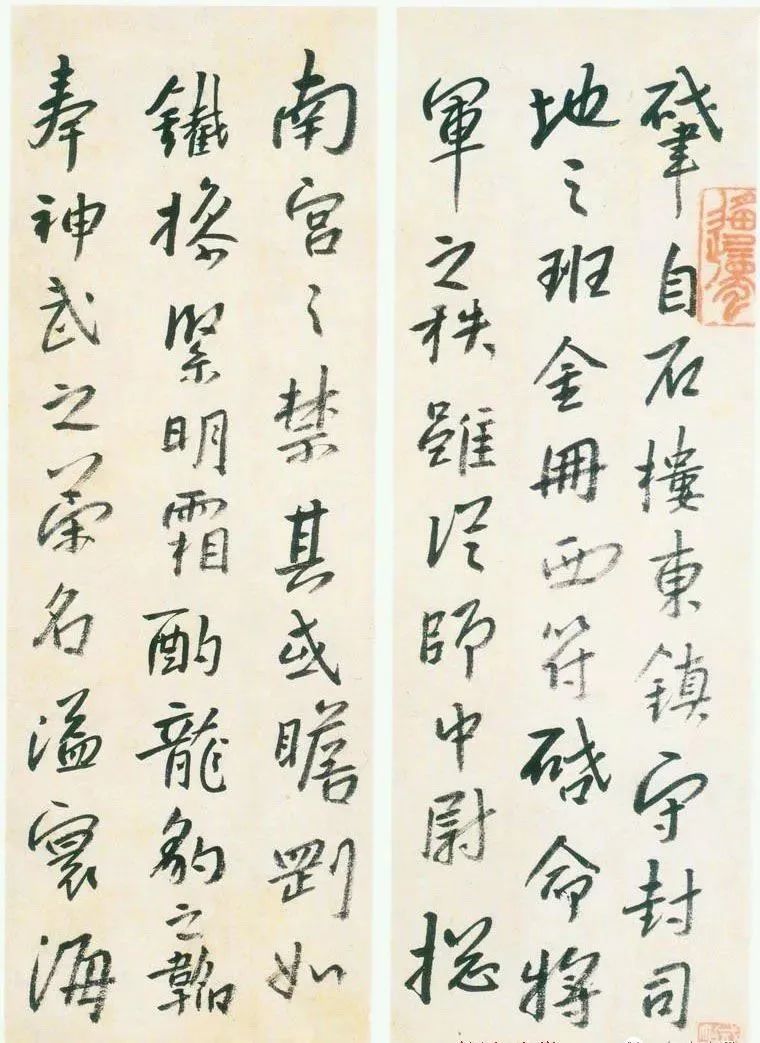 肇自石樓東鎮守封司
地之班金冊西符啓命將
軍之秩雖從師中尉總
南宮之禁其或瞻罰如
鐵操緊明霜酌龍豹之韜
奉神武之榮名溢寰海